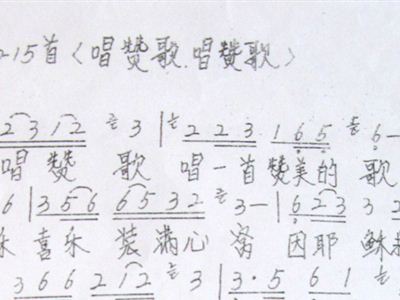 -15首〈唱赞歌.唱赞歌〉
2312 3 | 223 165 6—
唱赞歌唱一首赞美的歌
6 | 356 6532 3— | 623 32
乐喜乐装满心窝因耶稣
366 212 3 | 3·5 61